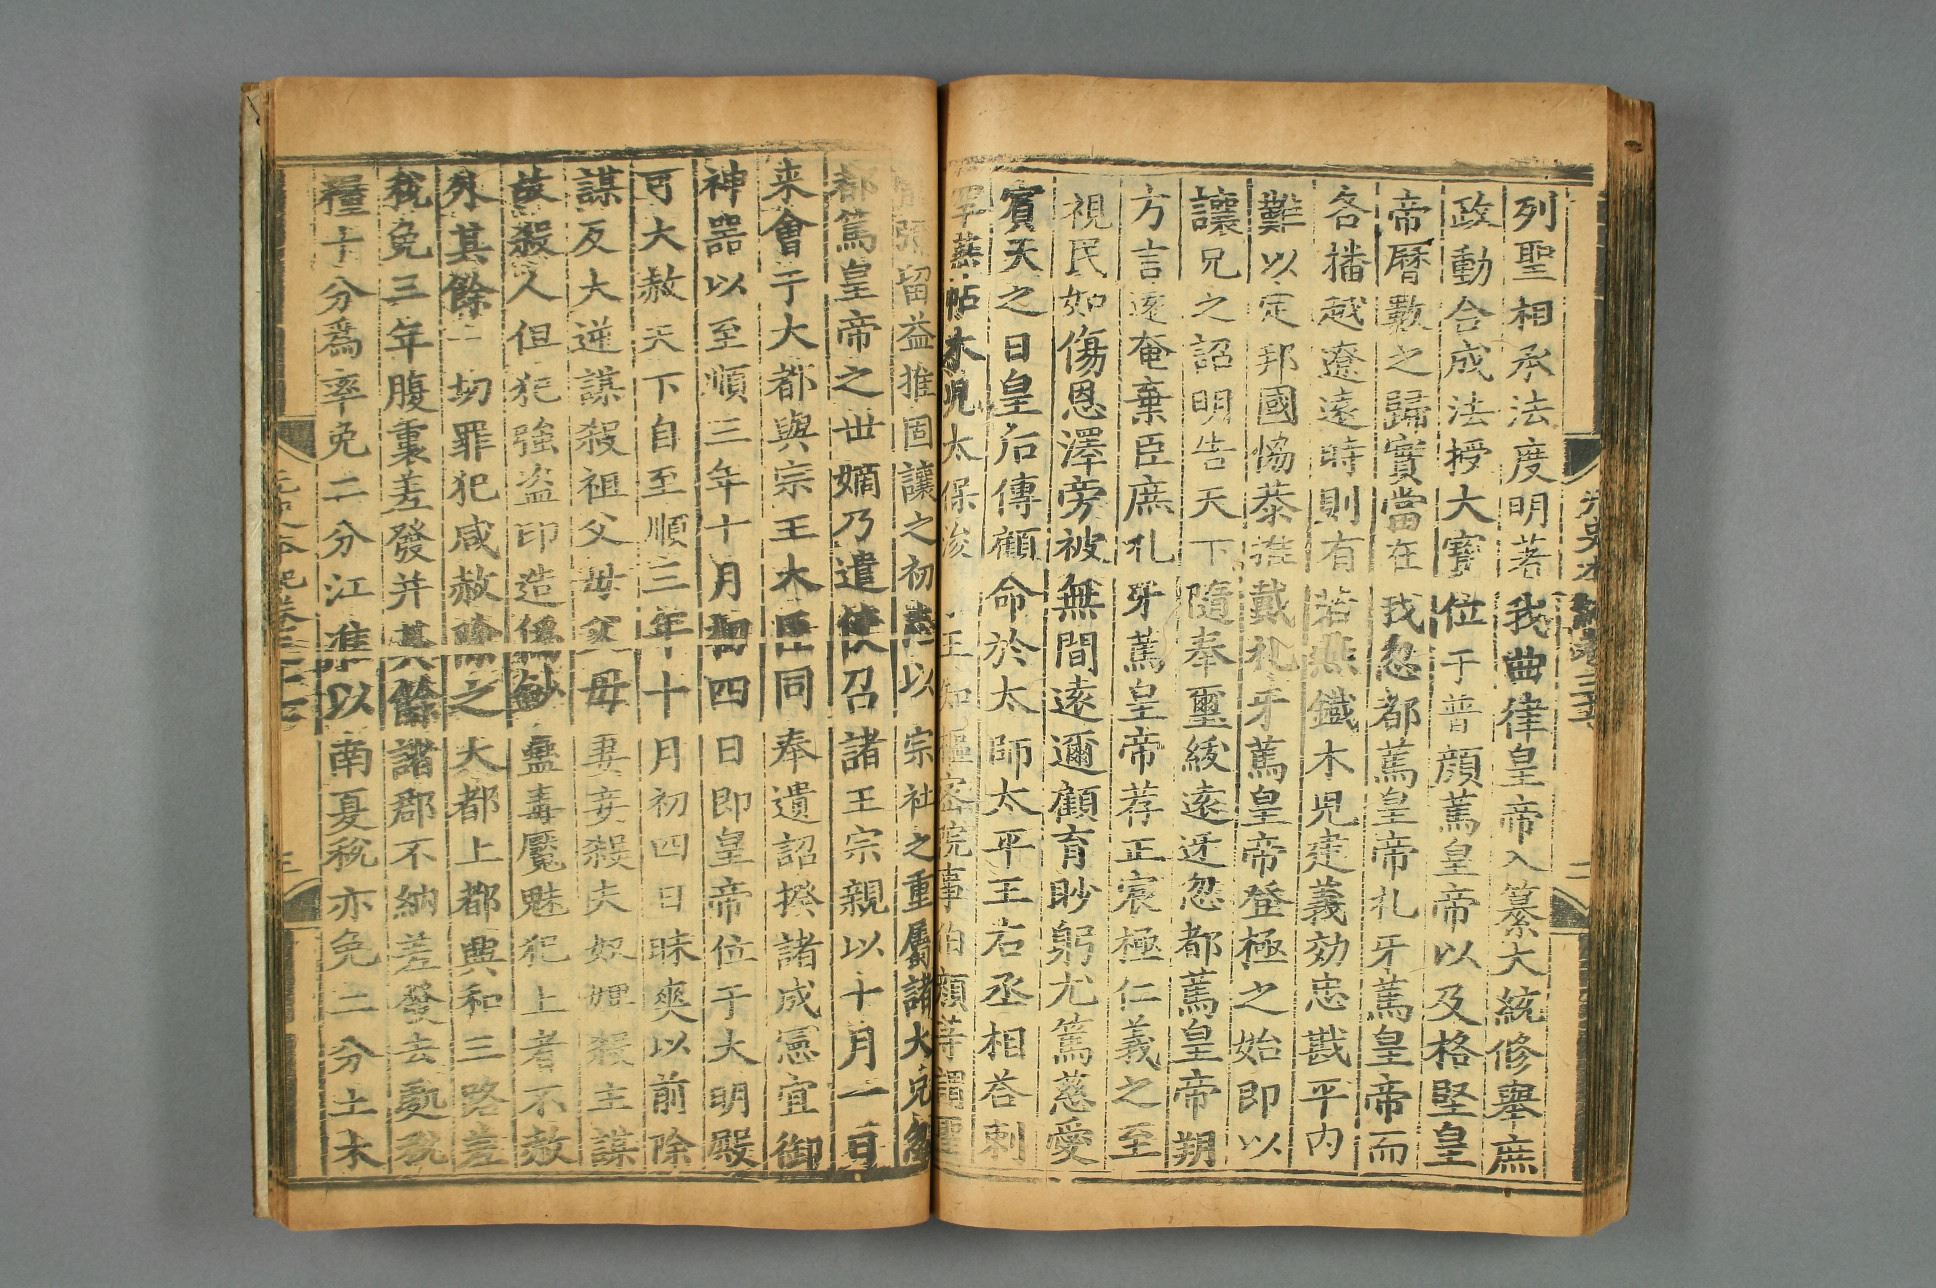 列聖相承法度明著我曲律皇帝入纂大統修舉庶
政動合成法授大寶位于普顔篤皇帝以及格堅皇
帝曆數之歸實當在我忽都篤皇帝札牙篤皇帝而
各播越遼遠時則有若燕鐵木児建義効忠戡平內
難以定邦國恊㳟推戴札牙篤皇帝登極之始即以
讓兄之詔明告天下隨奉璽紱遠迓忽都篤皇帝朔
方言還奄棄臣庶札牙篤皇帝荐正宸極仁義之至
視民如傷恩澤旁被無間遠邇顧育眇躬尤篤慈愛
賓天之日皇后傳顧命於太師太平王右丞相荅剌
罕燕帖木児太保浚 王知樞密院事伯顔等謂聖
留益推固讓之初志以宗社之重屬諸大兄忽
都篤皇帝之世嫡乃遣使召諸王宗親以十月一日
来會于大都與宗王大臣同奉遺詔揆諸成憲宜御
神器以至順三年十月初四日即皇帝位于大明殿
可大赦天下自至順三年十月初四日昧爽以前除
謀反大逆謀殺祖父母父母妻妾殺夫奴婢殺主謀
故殺人但犯強盗印造僞鈔蠱毒魘魅犯上者不赦
外其餘一切罪犯咸赦除之大都上都興和三路差
税免三年腹裏差發并其餘諸郡不納差發去䖏税
糧十分爲率免二分江淮以南夏税亦免二分土木
元史本紀卷三十七
三
元史本紀卷三十七
二